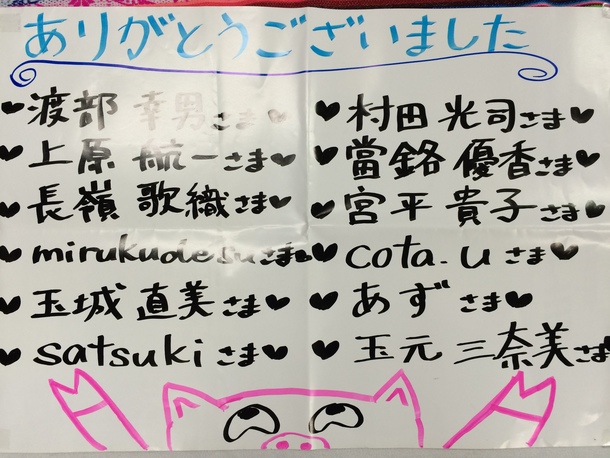 ありがとうございました
♥渡部 幸男さま♥ ♥村田 光司さま♥
♥上原 航一さま♥ ♥當銘 優香さま♥
♥長嶺 歌織さま♥ ♥宮平 貴子さま♥
♥mirukudesuさま♥ ♥cota.uさま♥
♥玉城 直美さま♥ ♥あずさま♥
♥satsukiさま♥ ♥玉元 三奈美さま